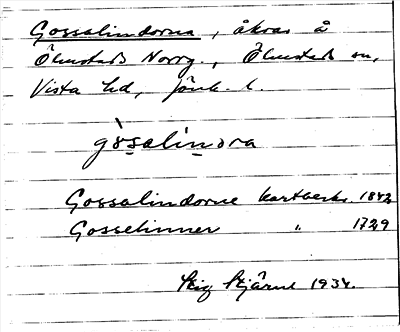 Gossalindorna, åkrar å
Ölmstads Norrg., Ölmstads sn,
Vista hd, Jönk. l.
gòsalinora
Gossalindorne kartbeskr. 1842
Gosselinner " 1729
Stig Stjärne 1934.